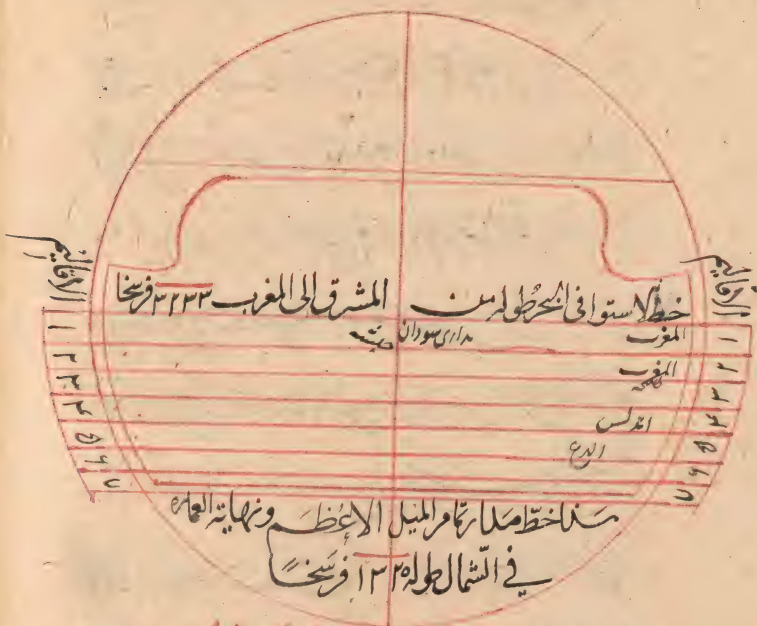 الاقاليم
الاقاليم
خط لاستوا فى البحر طوله من المشرق الى المغرب ٣٢٣٣ فرسخا
١ المغرب سودان حبشه ١
٢ المغرب ٢
٣ ٣
۴ اندلس ۴
۵ ۵
۶ ۶
٧ ٧
خط مدار تمام الميل الاعظم ونهاية العماره
في الشمال طوله ١٣٢٥ فرسخا